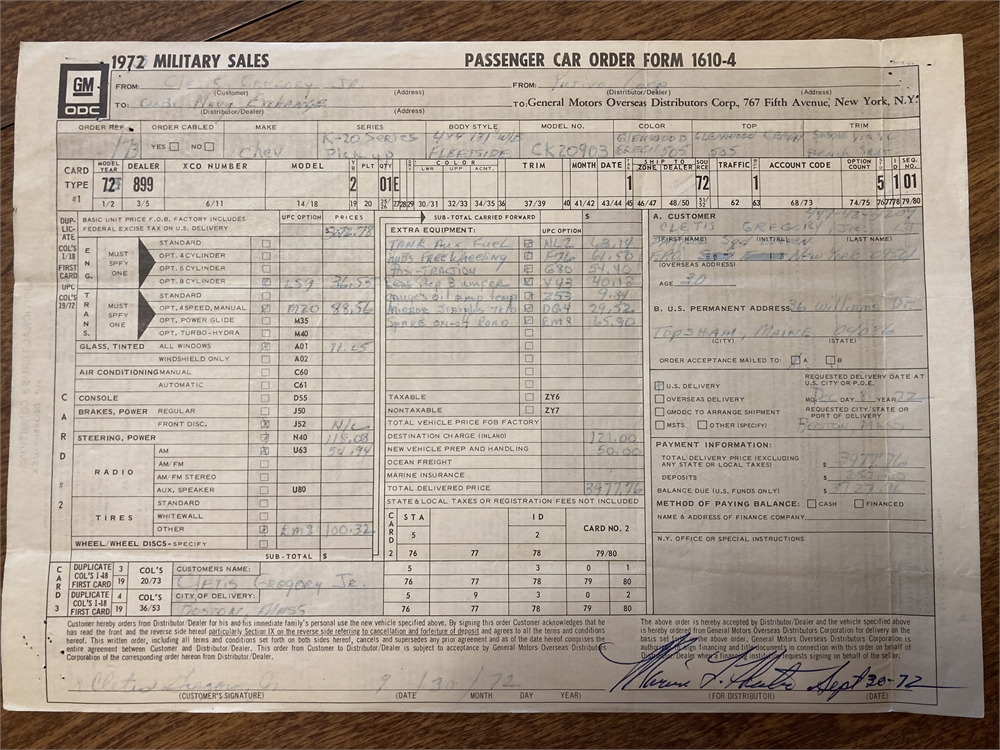 1972 MILITARY SALES
PASSENGER CAR ORDER FORM 1610-4
GM
ODC
FROM: CLETIS GREGORY JR
(Customer) (Address)
FROM:
(Distributor/Dealer) (Address)
TO: NAVY EXCHANGE
(Distributor/Dealer) (Address)
TO: General Motors Overseas Distributors Corp., 767 Fifth Avenue, New York, N.Y.
ORDER REF. ORDER CABLED MAKE SERIES BODY STYLE MODEL NO. COLOR TOP TRIM
YES NO Chev K-20 SERIES Pick 131 W/B FLEETSIDE CK20903 GLENWOOD GREEN 505 GLENWOOD GREEN 505
CARD TYPE #1
MODEL YEAR DEALER XCO NUMBER MODEL PLT QTY COLOR TRIM MONTH DATE SHIP TO ZONE DEALER SOURCE TRAFFIC ACCOUNT CODE OPTION COUNT SEQ. NO.
72 899 2 01 E 1 72 1 5 1 01
LWR UPP ACNT.
1/2 3/5 6/11 14/18 19 20 30/31 33/33 34/35 36 37/39 40 41/42 43/44 45 46/47 48/50 62 63 68/73 74/75 79/80
DUPLICATE COL'S 1/18 FIRST CARD UPC COL'S 19/72
BASIC UNIT PRICE F.O.B. FACTORY INCLUDES FEDERAL EXCISE TAX ON U.S. DELIVERY
UPC OPTION PRICES
ENG. MUST SPFY ONE
STANDARD
OPT. 4 CYLINDER
OPT. 6 CYLINDER
OPT. 8 CYLINDER LS9 36.55
TRANS. MUST SPFY ONE
STANDARD
OPT. 4 SPEED, MANUAL M20 88.56
OPT. POWER GLIDE M35
OPT. TURBO-HYDRA M40
GLASS, TINTED ALL WINDOWS A01
WINDSHIELD ONLY A02
AIR CONDITIONING MANUAL C60
AUTOMATIC C61
CONSOLE D55
BRAKES, POWER REGULAR J50
FRONT DISC. J52 N/C
STEERING, POWER N40 118.08
RADIO
AM U63 54.94
AM/FM
AM/FM STEREO
AUX. SPEAKER U80
TIRES
STANDARD
WHITEWALL
OTHER 100.32
WHEEL/WHEEL DISCS-SPECIFY
SUB-TOTAL $
CARD #2
SUB-TOTAL CARRIED FORWARD $
EXTRA EQUIPMENT: UPC OPTION
TANK AUX FUEL NL2 63.14
HUBS FREE WHEELING F76 61.50
POSI-TRACTION G80 54.40
REAR STEP BUMPER V43 40.18
GAUGES OIL AMP TEMP Z53 9.84
DG4 29.52
SPARE ON-OFF ROAD 65.90
TAXABLE ZY6
NONTAXABLE ZY7
TOTAL VEHICLE PRICE FOB FACTORY
DESTINATION CHARGE (INLAND) 121.00
NEW VEHICLE PREP AND HANDLING 50.00
OCEAN FREIGHT
MARINE INSURANCE
TOTAL DELIVERED PRICE 3977.76
STATE & LOCAL TAXES OR REGISTRATION FEES NOT INCLUDED
CARD 2
STA ID CARD NO. 2
5 2
76 77 78 79/80
A. CUSTOMER
CLETIS GREGORY Jr.
(FIRST NAME) (INITIAL) (LAST NAME)
FPO NEW YORK
(OVERSEAS ADDRESS)
AGE 30
B. U.S. PERMANENT ADDRESS
TOPSHAM, MAINE 04086
(CITY) (STATE)
ORDER ACCEPTANCE MAILED TO: A B
U.S. DELIVERY
OVERSEAS DELIVERY
GMODC TO ARRANGE SHIPMENT
MSTS OTHER (SPECIFY)
REQUESTED DELIVERY DATE AT U.S. CITY OR P.O.E.
MO. DEC DAY 8 YEAR 72
REQUESTED CITY, STATE OR PORT OF DELIVERY
BOSTON MASS
PAYMENT INFORMATION:
TOTAL DELIVERY PRICE (EXCLUDING ANY STATE OR LOCAL TAXES) $ 3977.76
DEPOSITS $
BALANCE DUE (U.S. FUNDS ONLY) $
METHOD OF PAYING BALANCE: CASH FINANCED
NAME & ADDRESS OF FINANCE COMPANY
N.Y. OFFICE OR SPECIAL INSTRUCTIONS
CARD 3
DUPLICATE COL'S 1-18 FIRST CARD 3 19 COL'S 20/73 CUSTOMERS NAME: CLETIS GREGORY JR. 5 3 0 1
76 77 78 79 80
DUPLICATE COL'S 1-18 FIRST CARD 4 19 COL'S 36/53 CITY OF DELIVERY: BOSTON MASS 5 9 3 0 2
76 77 78 79 80
Customer hereby orders from Distributor/Dealer for his and his immediate family's personal use the new vehicle specified above. By signing this order Customer acknowledges that he has read the front and the reverse side hereof particularly Section IX on the reverse side referring to cancellation and forfeiture of deposit and agrees to all the terms and conditions hereof. This written order, including all terms and conditions set forth on both sides hereof, cancels and supersedes any prior agreement and as of the date hereof comprises the entire agreement between Customer and Distributor/Dealer. This order from Customer to Distributor/Dealer is subject to acceptance by General Motors Overseas Distributors Corporation of the corresponding order hereon from Distributor/Dealer.
The above order is hereby accepted by Distributor/Dealer and the vehicle specified above is hereby ordered from General Motors Overseas Distributors Corporation for delivery on the basis set forth in the above order. General Motors Overseas Distributors Corporation is authorized to sign financing and title documents in connection with this order on behalf of Distributor/Dealer when a financing institution requests signing on behalf of the seller.
Cletis Gregory Jr 9 / 30 / 72
(CUSTOMER'S SIGNATURE) (DATE MONTH DAY YEAR)
Sept 30-72
(FOR DISTRIBUTOR) (DATE)